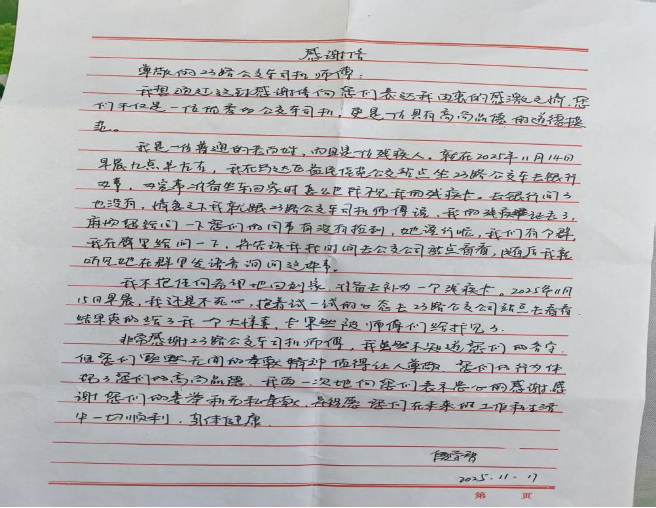 感谢信
尊敬的23路公交车司机师傅:
我想通过这封感谢信向您们表达我由衷的感激之情,您
们不仅是一位优秀的公交车司机,更是一位具有高尚品德的道德模
范。
我是一位普通的老百姓,而且是一位残疾人。就在2025年11月14日
早晨九点半左右,我在公交站点坐23路公交车去银行
办事,办完事准备坐车回家时怎么也找不见我的残疾卡。去银行问了
也没有,情急之下我就跟23路公交车司机师傅说,我的残疾证丢了,
麻烦您给问一下您们的同事有没有捡到,她说行呢,我们有个群,
我在群里给问一下,并告诉我我时间去公交公司站点看看,以后我就
听见她在群里发语音询问这件事。
我不抱任何希望地回到家,准备去补办一个残疾卡。2025年11月
15日早晨,我还是不死心,抱着试一试的心态去23路公交公司站点去看看,
结果真的给了我一个大惊喜,卡果然被师傅们给捡见了。
非常感谢23路公交车司机师傅,我虽然不知道您们的名字,
但您们默默无闻的奉献精神值得让人尊敬,您们的行为体
现了您们的高尚品德,我再一次地向您们表示衷心的感谢,感
谢您们的善举和无私奉献,并祝愿您们在未来的工作和生活
中一切顺利,身体健康.
2025.11.17
第 页